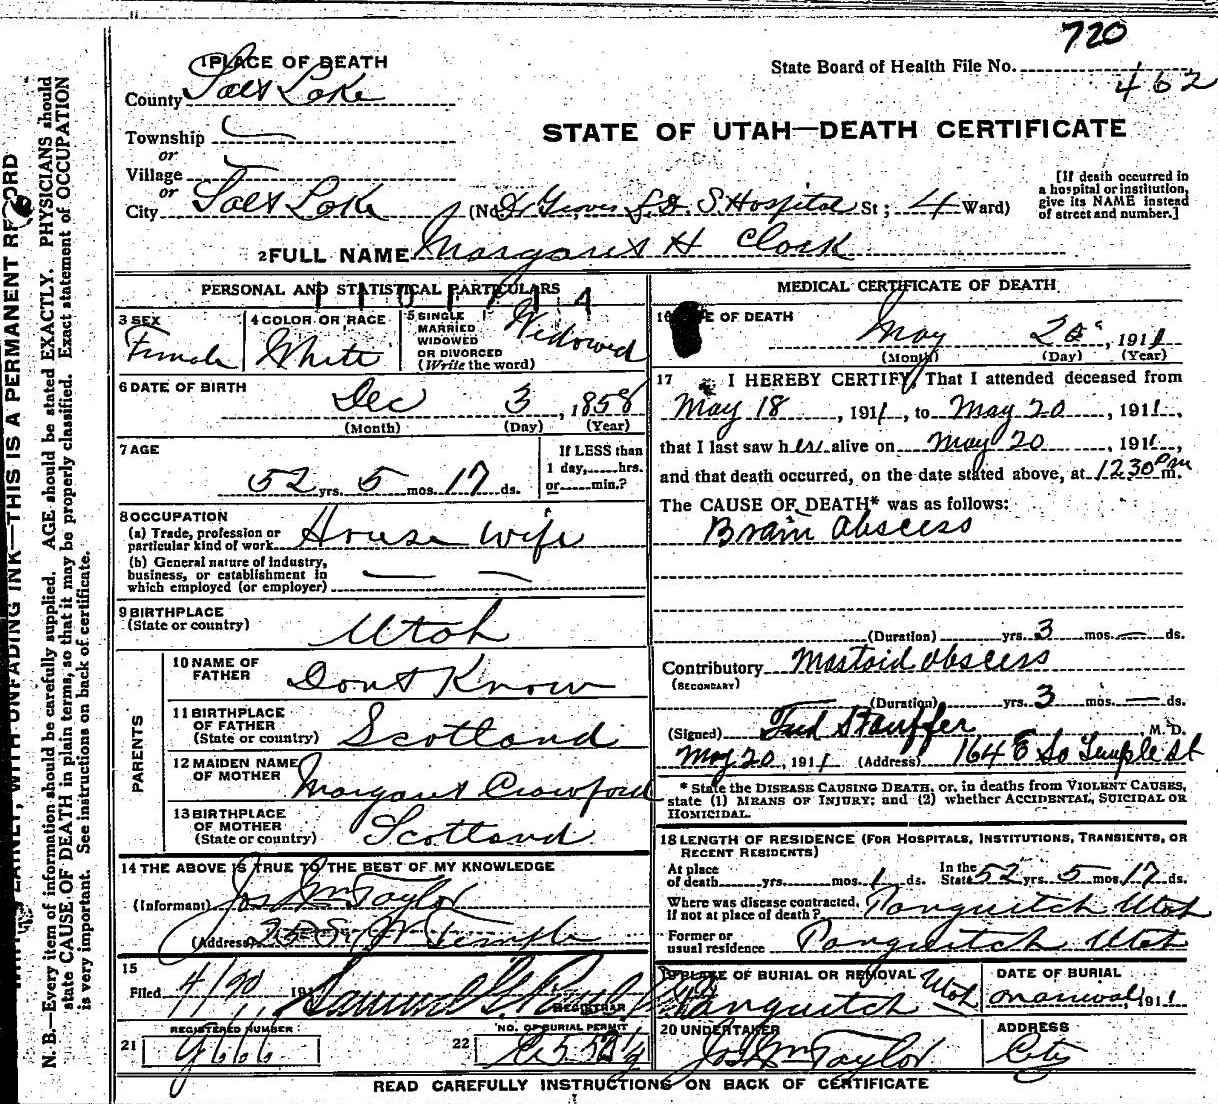 720
1 PLACE OF DEATH
State Board of Health File No. 462
County Salt Lake
STATE OF UTAH—DEATH CERTIFICATE
Township
or
Village
or
City Salt Lake (No. Dr Groves L.D.S. Hospital St; 4 Ward)
[If death occurred in
a hospital or institution,
give its NAME instead
of street and number.]
2 FULL NAME Margaret H Clark
PERSONAL AND STATISTICAL PARTICULARS
3 SEX
Female
4 COLOR OR RACE
White
5 SINGLE
MARRIED
WIDOWED
OR DIVORCED
(Write the word)
Widowed
6 DATE OF BIRTH
Dec 3, 1858
(Month) (Day) (Year)
7 AGE
52 yrs. 5 mos. 17 ds.
If LESS than
1 day, hrs.
or min.?
8 OCCUPATION
(a) Trade, profession or
particular kind of work House wife
(b) General nature of industry,
business, or establishment in
which employed (or employer)
9 BIRTHPLACE
(State or country)
Utah
PARENTS
10 NAME OF
FATHER
Dont Know
11 BIRTHPLACE
OF FATHER
(State or country)
Scotland
12 MAIDEN NAME
OF MOTHER
Margaret Crawford
13 BIRTHPLACE
OF MOTHER
(State or country)
Scotland
14 THE ABOVE IS TRUE TO THE BEST OF MY KNOWLEDGE
(Informant) Jos Wm Taylor
(Address) Temple
15
Filed 191
REGISTRAR
REGISTERED NUMBER
21 9666
NO. OF BURIAL PERMIT
22
MEDICAL CERTIFICATE OF DEATH
16 OF DEATH
May 20, 1911
(Month) (Day) (Year)
17 I HEREBY CERTIFY, That I attended deceased from
May 18, 1911, to May 20, 1911,
that I last saw her alive on May 20, 1911,
and that death occurred, on the date stated above, at 12 30 Pm m.
The CAUSE OF DEATH* was as follows:
Brain abscess
(Duration) yrs. 3 mos. — ds.
Contributory Mastoid abscess
(SECONDARY)
(Duration) yrs. 3 mos. — ds.
(Signed) Fred Stauffer M. D.
May 20, 1911 (Address) 164 E So Temple St
* State the DISEASE CAUSING DEATH, or, in deaths from VIOLENT CAUSES,
state (1) MEANS OF INJURY; and (2) whether ACCIDENTAL, SUICIDAL OR
HOMICIDAL.
18 LENGTH OF RESIDENCE (FOR HOSPITALS, INSTITUTIONS, TRANSIENTS, OR
RECENT RESIDENTS)
At place
of death yrs. mos. 1 ds.
In the
State 52 yrs. 5 mos. 17 ds.
Where was disease contracted,
if not at place of death? Panguitch Utah
Former or
usual residence Panguitch Utah
19 PLACE OF BURIAL OR REMOVAL
Panguitch Utah
DATE OF BURIAL
On arrival, 1911
20 UNDERTAKER
Jos Wm Taylor
ADDRESS
City
READ CAREFULLY INSTRUCTIONS ON BACK OF CERTIFICATE
WITH UNFADING INK—THIS IS A PERMANENT RECORD
N. B.—Every item of information should be carefully supplied. AGE should be stated EXACTLY. PHYSICIANS should
state CAUSE OF DEATH in plain terms, so that it may be properly classified. Exact statement of OCCUPATION
is very important. See instructions on back of certificate.